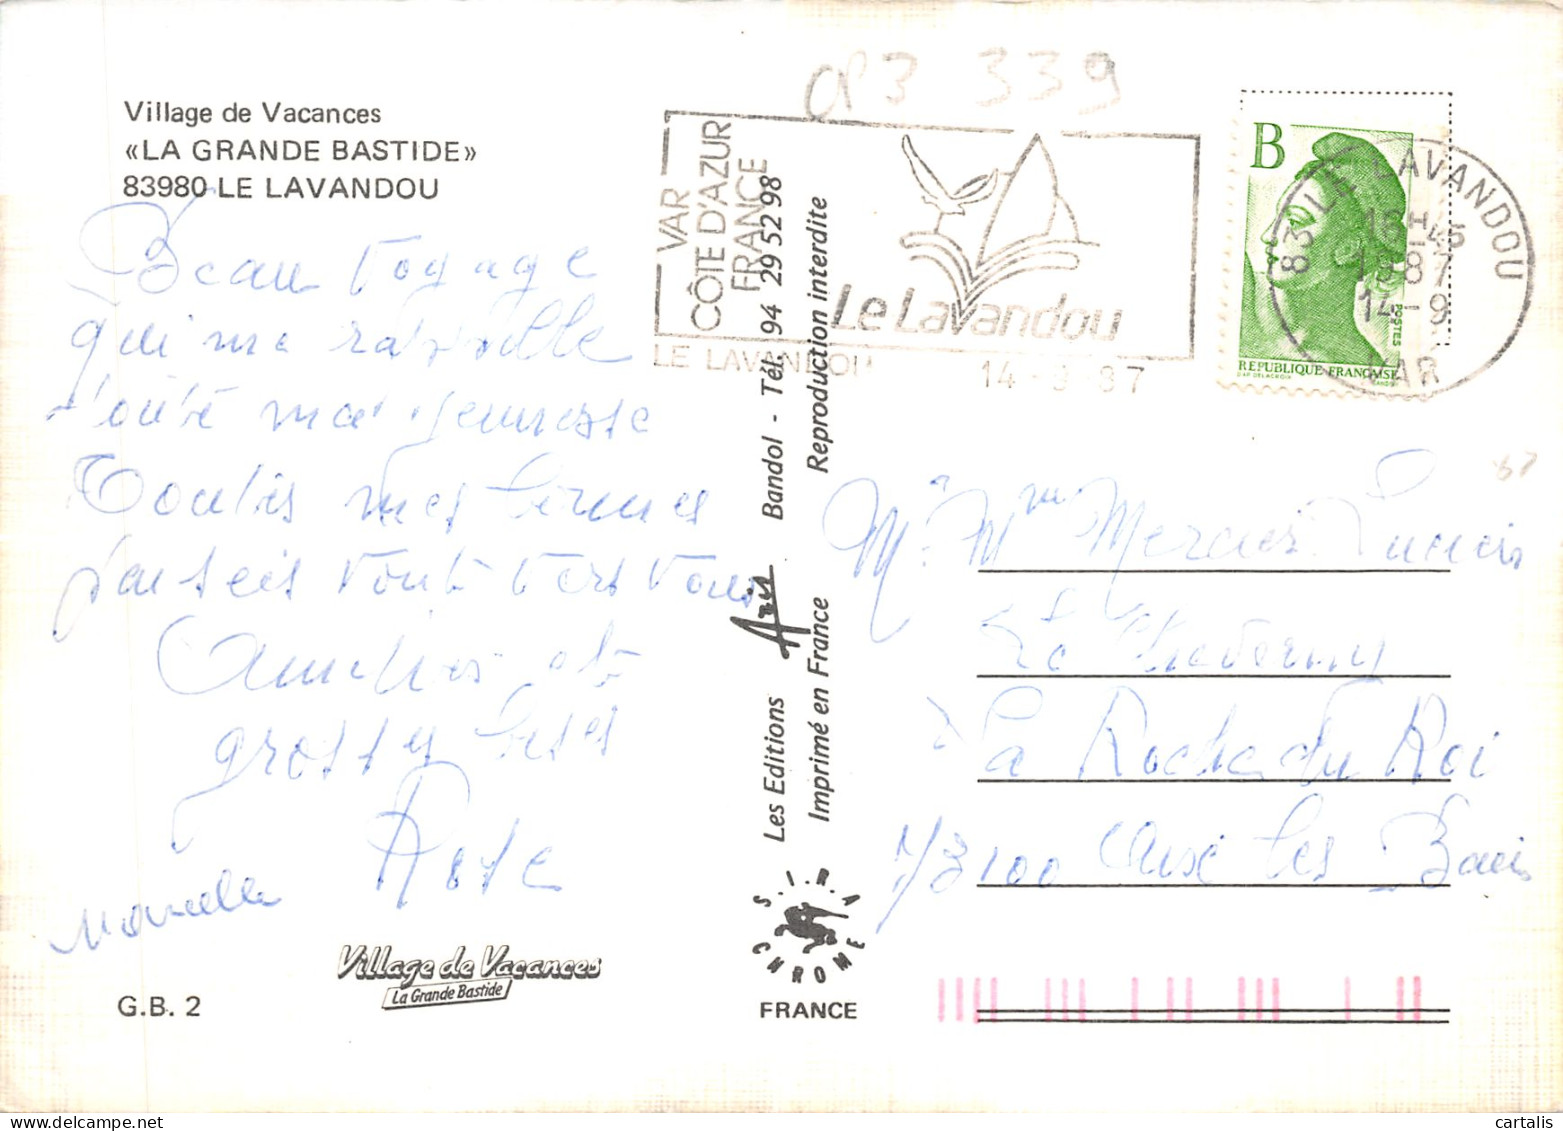 C83 339
Village de Vacances
«LA GRANDE BASTIDE»
83980 LE LAVANDOU
Beau voyage
qui me rappelle
toute ma jeunesse
Toutes mes bonnes
pensées vont vers vous
Amitiés et
grosses bises
Rose
Marcelle
Village de Vacances
La Grande Bastide
G.B. 2
VAR
CÔTE D'AZUR
FRANCE
Le Lavandou
LE LAVANDOU
14-9 87
B
RÉPUBLIQUE FRANÇAISE
POSTES
D'AP. DELACROIX
GANDON
83 LE LAVANDOU
16H45
1987
14-9
VAR
Les Editions Aris Bandol - Tél. 94 29 52 98
Imprimé en France Reproduction interdite
S.I.R.A
CHROME
FRANCE
87
Mr Mme Mercier Lucien
La
à La Roche du Roi
73100 Aix les Bains